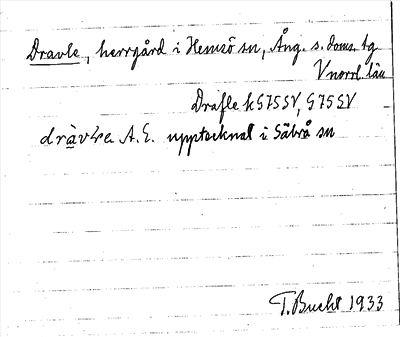 Dravle, herrgård i Hemsö sn, Ång. s. doms. tg
V norrl. län
Drafle k G75SV, G75SV
A. E. upptecknat i Säbrå sn
T. Bucht 1933